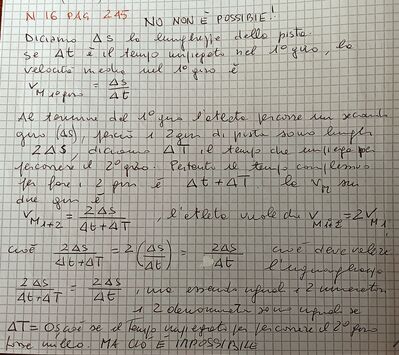 N 16 PAG 245 NO NON È POSSIBILE!
Diciamo Δs la lunghezza della pista.
Se Δt è il tempo impiegato nel 1° giro, la
velocità media nel 1° giro è
V_M 1° giro = Δs/Δt
Al termine del 1° giro l'atleta percorre un secondo
giro (Δs), perciò i 2 giri di pista sono lunghi
2Δs, diciamo ΔT il tempo che impiega per
percorrere il 2° giro. Pertanto il tempo complessivo
per fare i 2 giri è Δt+ΔT. La V_M sui
due giri è
V_M 1+2 = 2Δs/(Δt+ΔT), l'atleta vuole che V_M 1+2 = 2V_M 1,
cioè 2Δs/(Δt+ΔT) = 2(Δs/Δt) = 2Δs/Δt cioè deve valere
l'uguaglianza
2Δs/(Δt+ΔT) = 2Δs/Δt, ma essendo uguali i 2 numeratori
i 2 denominatori sono uguali se
ΔT = 0s cioè se il tempo impiegato per percorrere il 2° giro
fosse nullo. MA CIÒ È IMPOSSIBILE